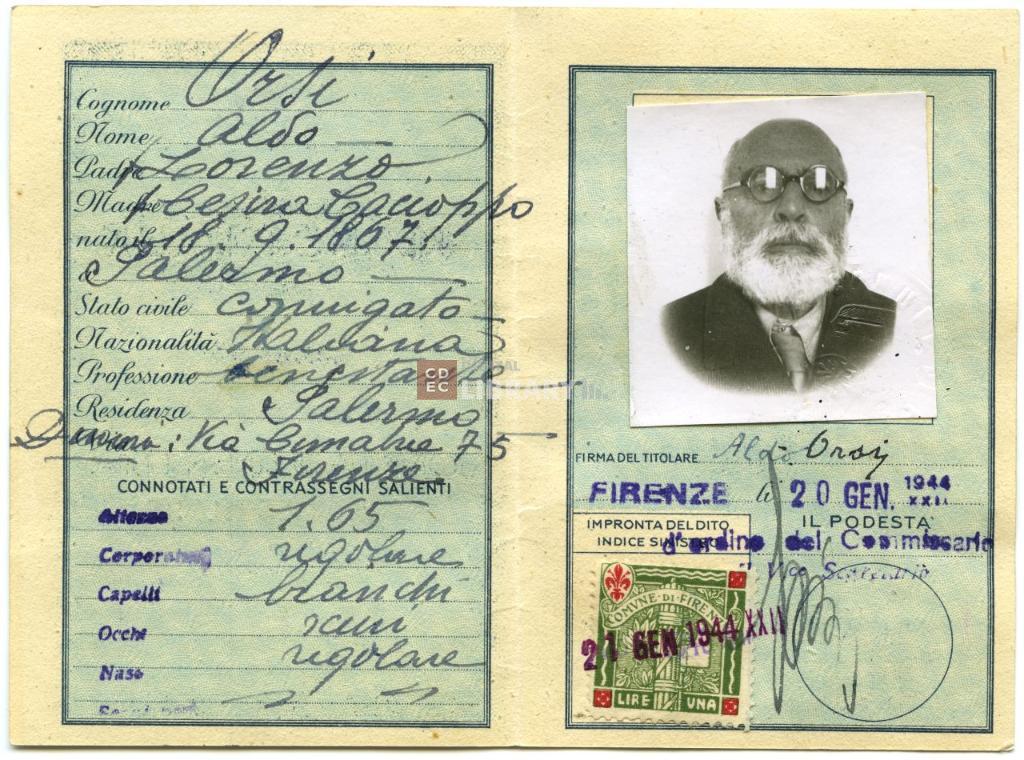 Cognome Orsi
Nome Aldo
Padre f Lorenzo
Madre f Cesira Cacioppo
nato il 18. 9. 1867
a Palermo
Stato civile coniugato
Nazionalità Italiana
Professione benestante
Residenza Palermo
Via Cimabue 75
Firenze
CONNOTATI E CONTRASSEGNI SALIENTI
Altezza 1.65
Corporatura regolare
Capelli bianchi
Occhi scuri
Naso regolare
CDEC
LIBRARY
FIRMA DEL TITOLARE Aldo Orsi
FIRENZE li 20 GEN. 1944 XXII
IMPRONTA DEL DITO
INDICE SINISTRO
IL PODESTA'
d'ordine del Commissario
il Vice Segretario
COMVNE·DI·FIREN
21 GEN 1944 XXII
LIRE VNA